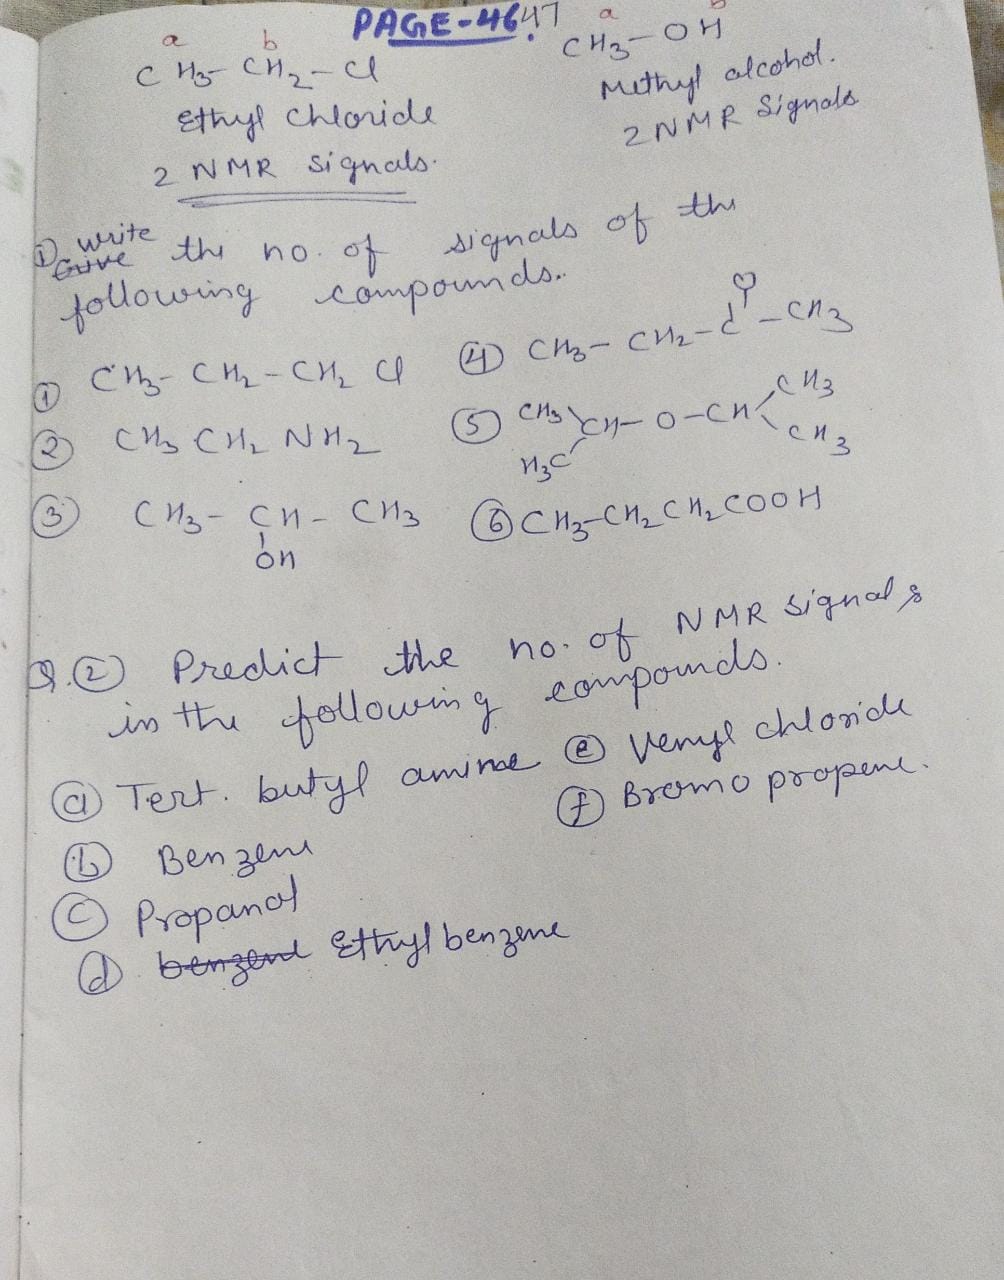 PAGE-4647
a b
CH3-CH2-Cl
Ethyl chloride
2 NMR signals.
a b
CH3-OH
Methyl alcohol.
2 NMR Signals
① write
Give the no. of signals of the
following compounds..
① CH3-CH2-CH2 Cl
② CH3 CH2 NH2
③ CH3-CH-CH3
OH
④ CH3-CH2-C-CH3
O
⑤ CH3 CH-O-CH CH3
H3C CH3
⑥ CH3-CH2CH2COOH
Q.② Predict the no. of NMR signals
in the following compounds.
ⓐ Tert. butyl amine
ⓑ Benzene
ⓒ Propanol
ⓓ benzene Ethyl benzene
ⓔ Venyl chloride
ⓕ Bromo propene.